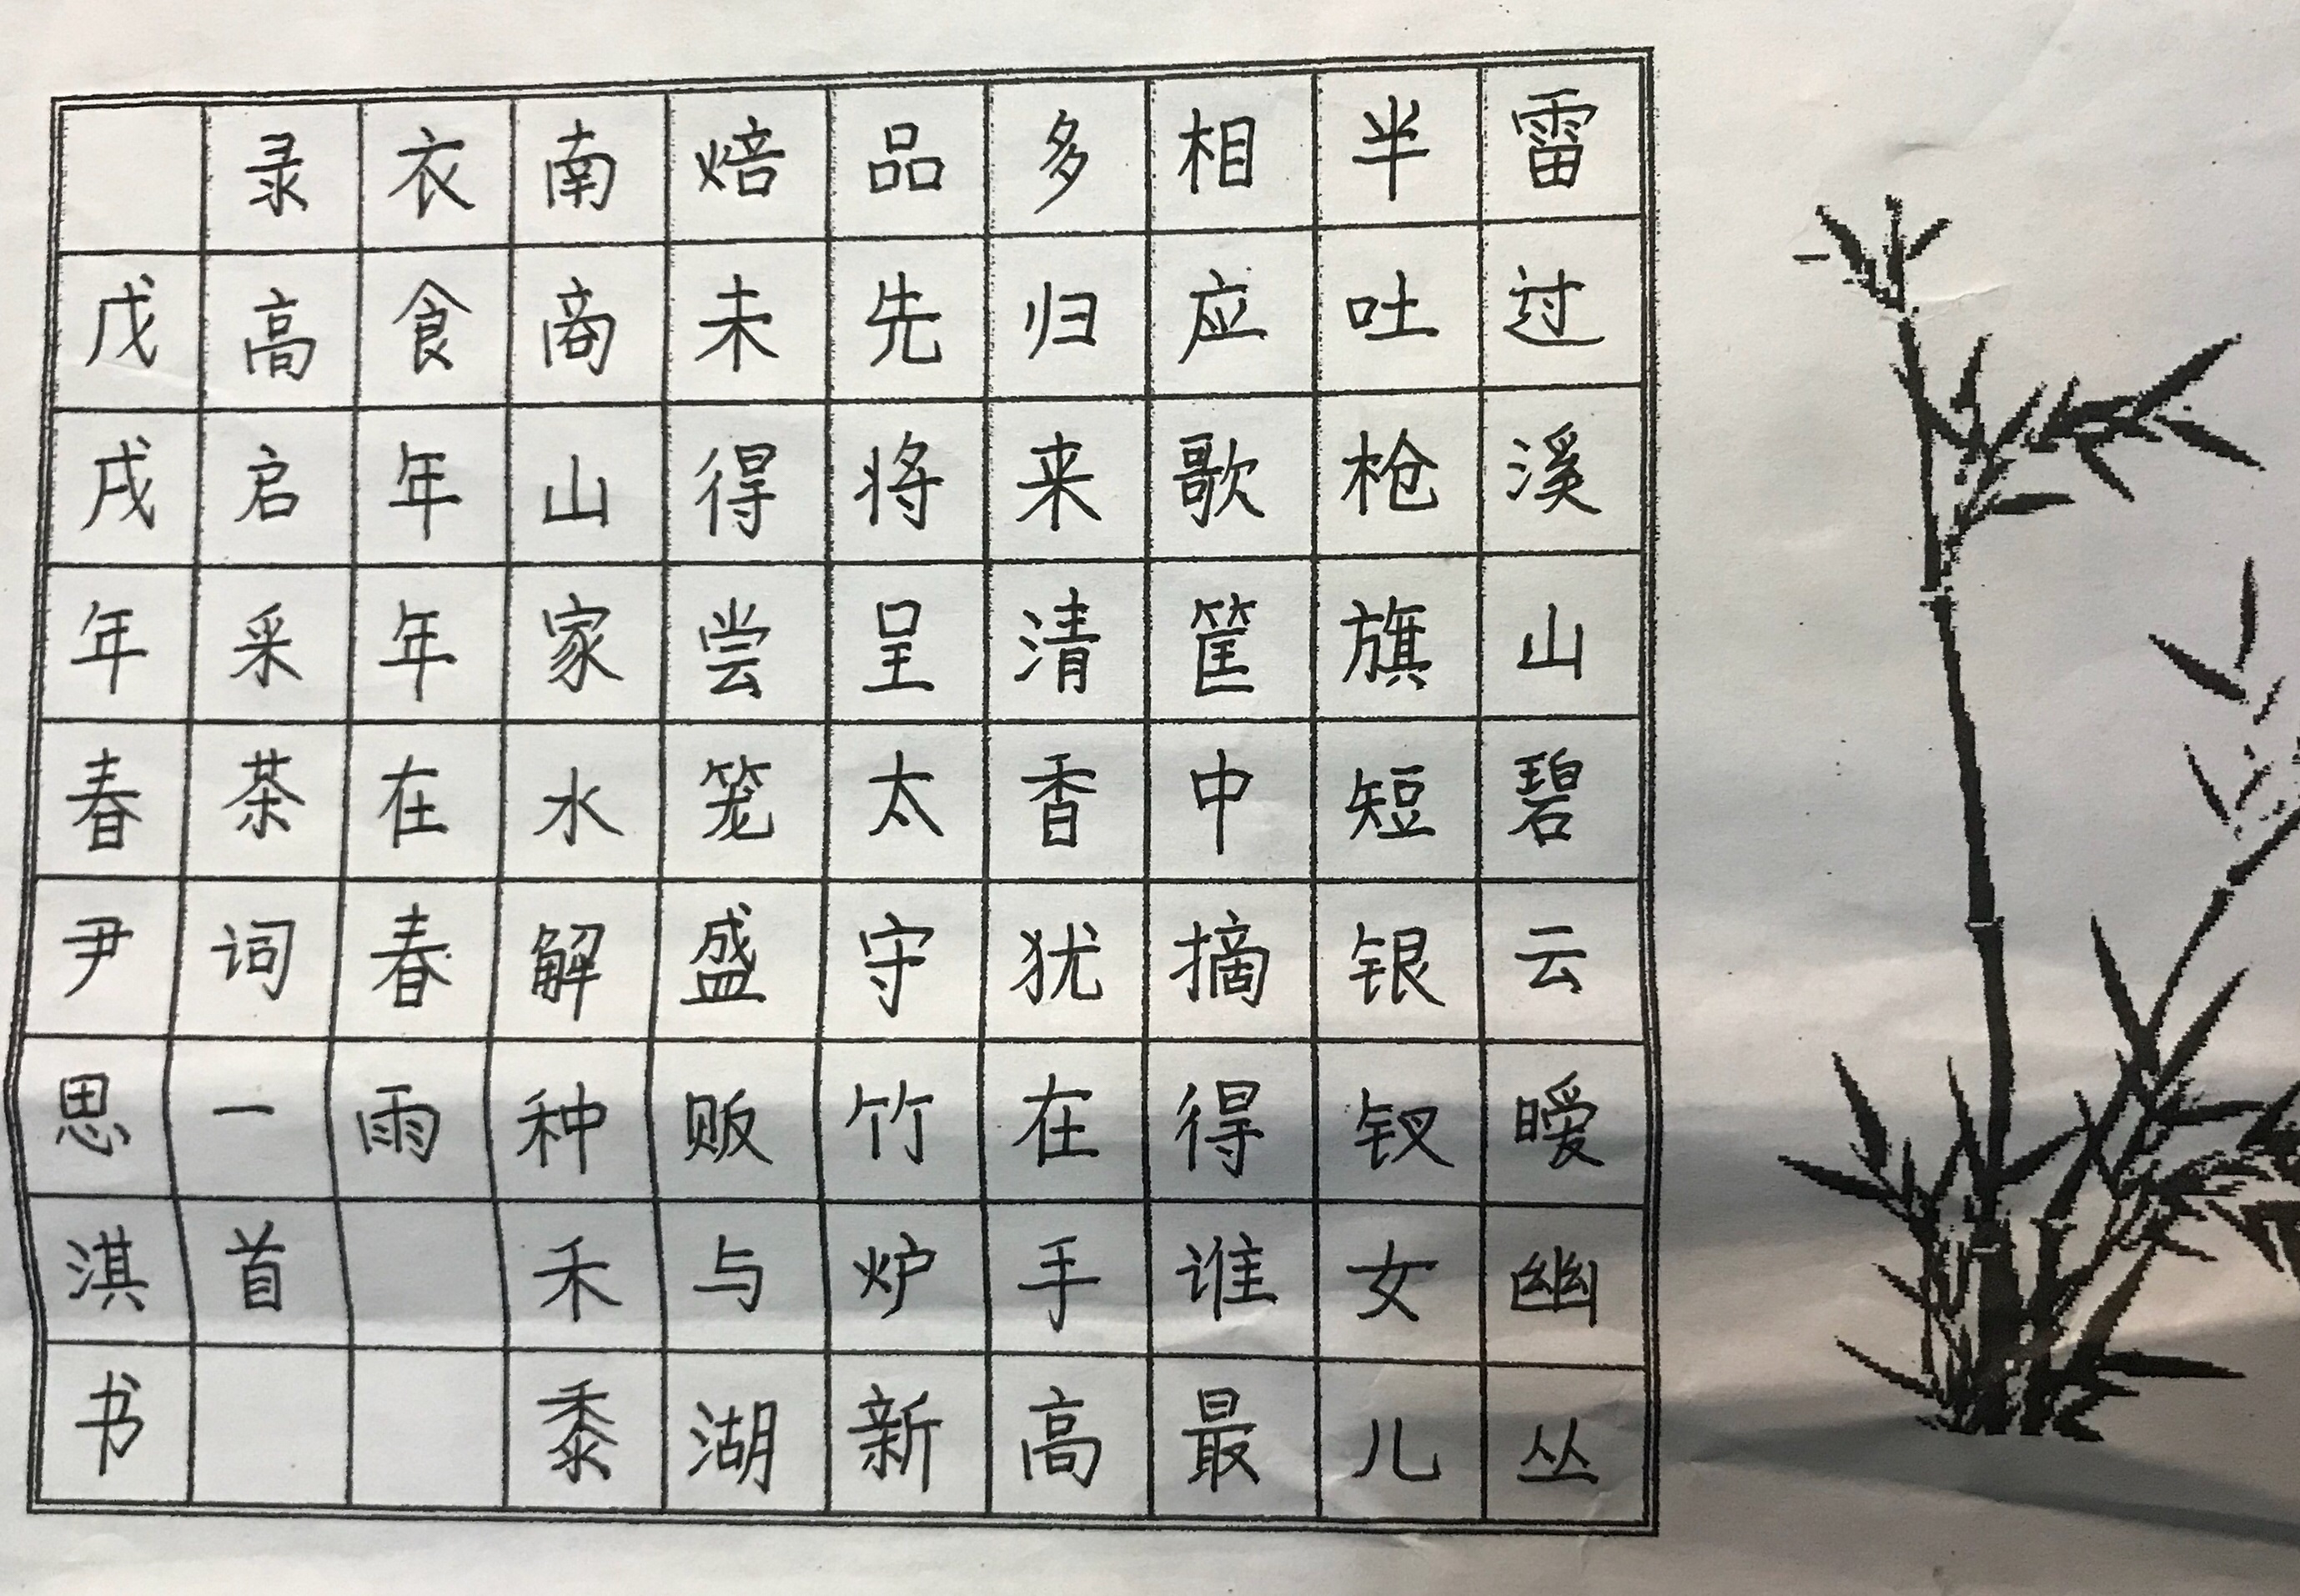 雷过溪山碧云暖幽丛
半吐枪旗短银钗女儿
相应歌筐中摘得谁最
多归来清香犹在手高
品先将呈太守竹炉新
焙未得尝笼盛贩与湖
南商山家水解种禾黍
衣食年年在春雨
录高启采茶词一首
戊戌年春尹思淇书